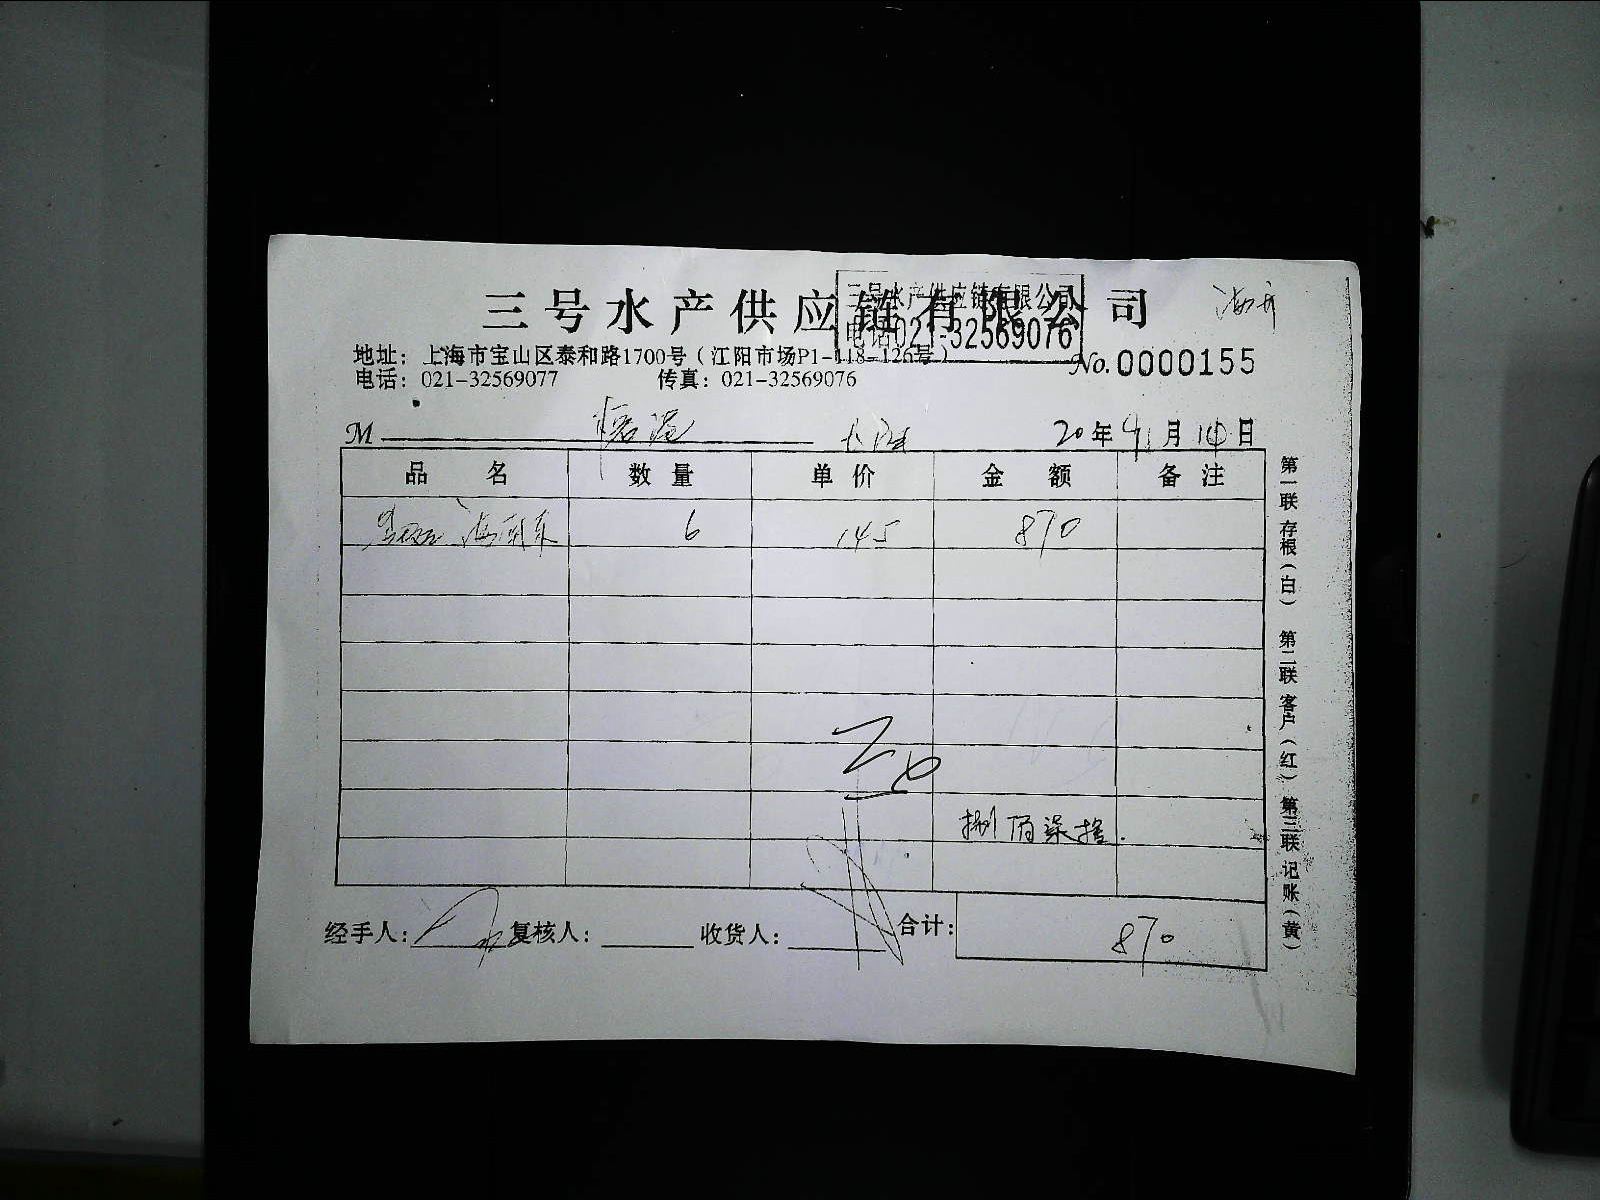 三号水产供应链有限公司
三号水产供应链有限公司
电话021-32569076
地址：上海市宝山区泰和路1700号（江阳市场P1-118-126号）
No.0000155
电话：021-32569077 传真：021-32569076
M 20年9月14日
品名 数量 单价 金额 备注
6 145 870
捌佰柒拾
经手人： 复核人： 收货人： 合计：870
第一联存根（白） 第二联客户（红） 第三联记账（黄）